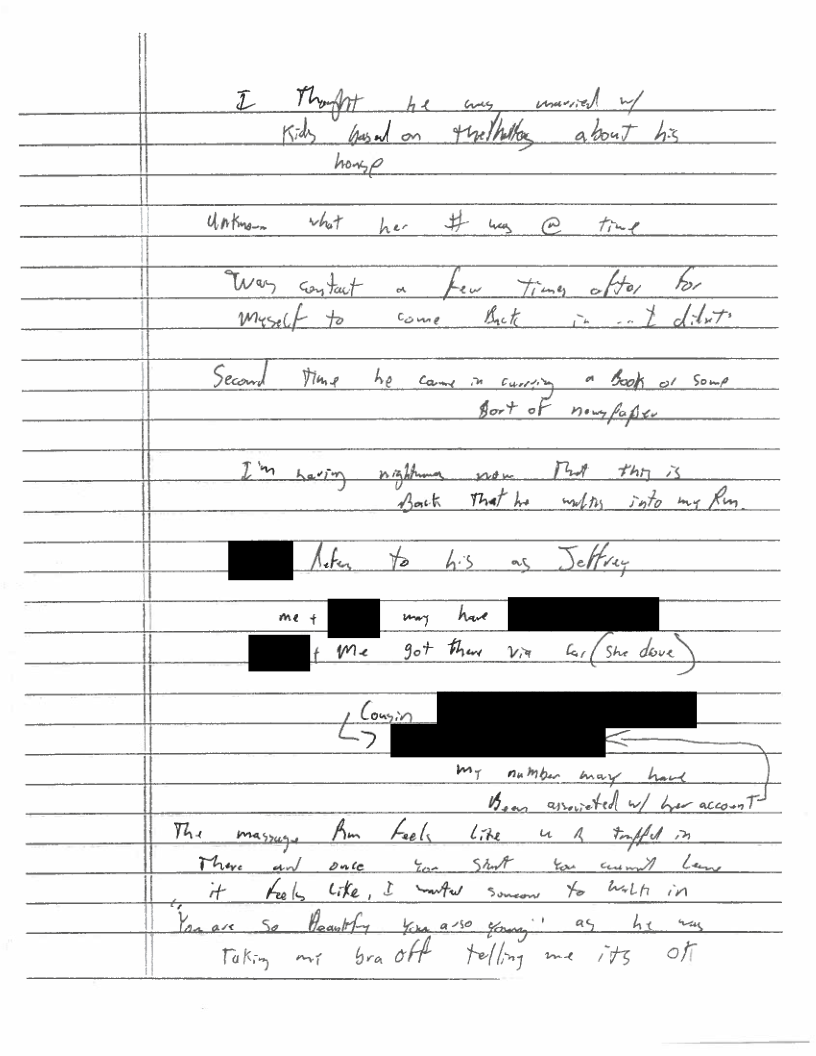 I Thought he was married w/
Kids based on the talking about his
house
Unknown what her # was @ time
Was contact a few times after for
myself to come Back in ... I didn't
Second time he came in carrying a Book or some
sort of newspaper
I'm having nightmares now That this is
Back That he walks into my Rm.
Refers to his as Jeffrey
me + may have
+ Me got there via Car (she dove)
Cousin
my number may have
Been associated w/ her account
The massage Rm feels like u R trapped in
There and once you start you cannot leave
it feels like, I wanted someone to walk in
"You are so Beautify you are so young" as he was
Taking my bra off telling me its ok